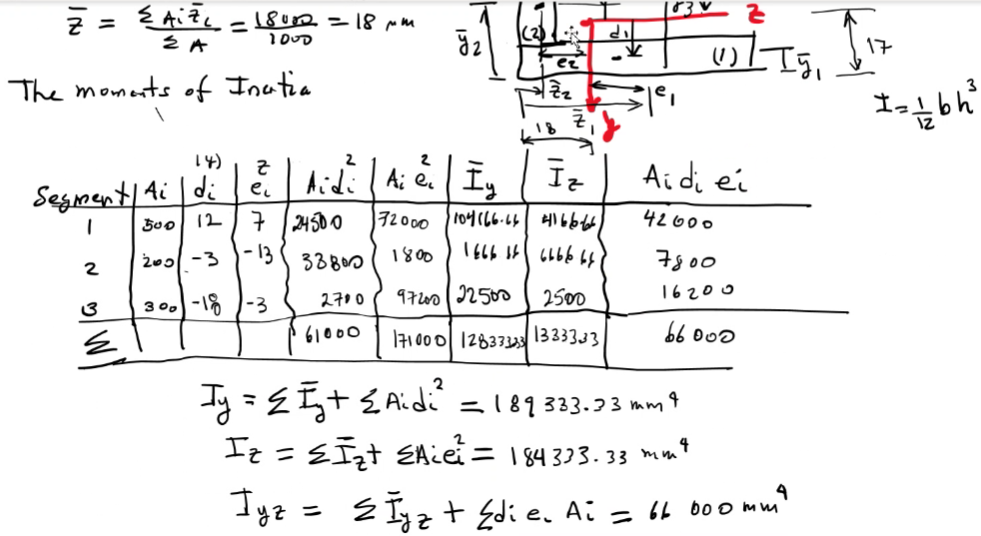 z̄ = Σ Ai z̄i / Σ A = 18000 / 1000 = 18 mm
ȳ2 (2) d1 z
e2 (1) ȳ1 17
z̄2 e1
z̄ y
18
I = 1/12 b h³
The moments of Inertia
(4) z
Segment Ai di ei Aidi² Ai ei² Īy Īz Ai di ei
1 500 12 7 24500 72000 104166.66 4166.66 42000
2 200 -3 -13 33800 1800 1666.66 6666.66 7800
3 300 -18 -3 2700 97200 22500 2500 16200
Σ 61000 171000 128333.33 13333.33 66000
Iy = Σ Īy + Σ Aidi² = 189 333.33 mm⁴
Iz = Σ Īz + ΣAiei² = 184333.33 mm⁴
Iyz = Σ Īyz + Σdi ei Ai = 66 000 mm⁴